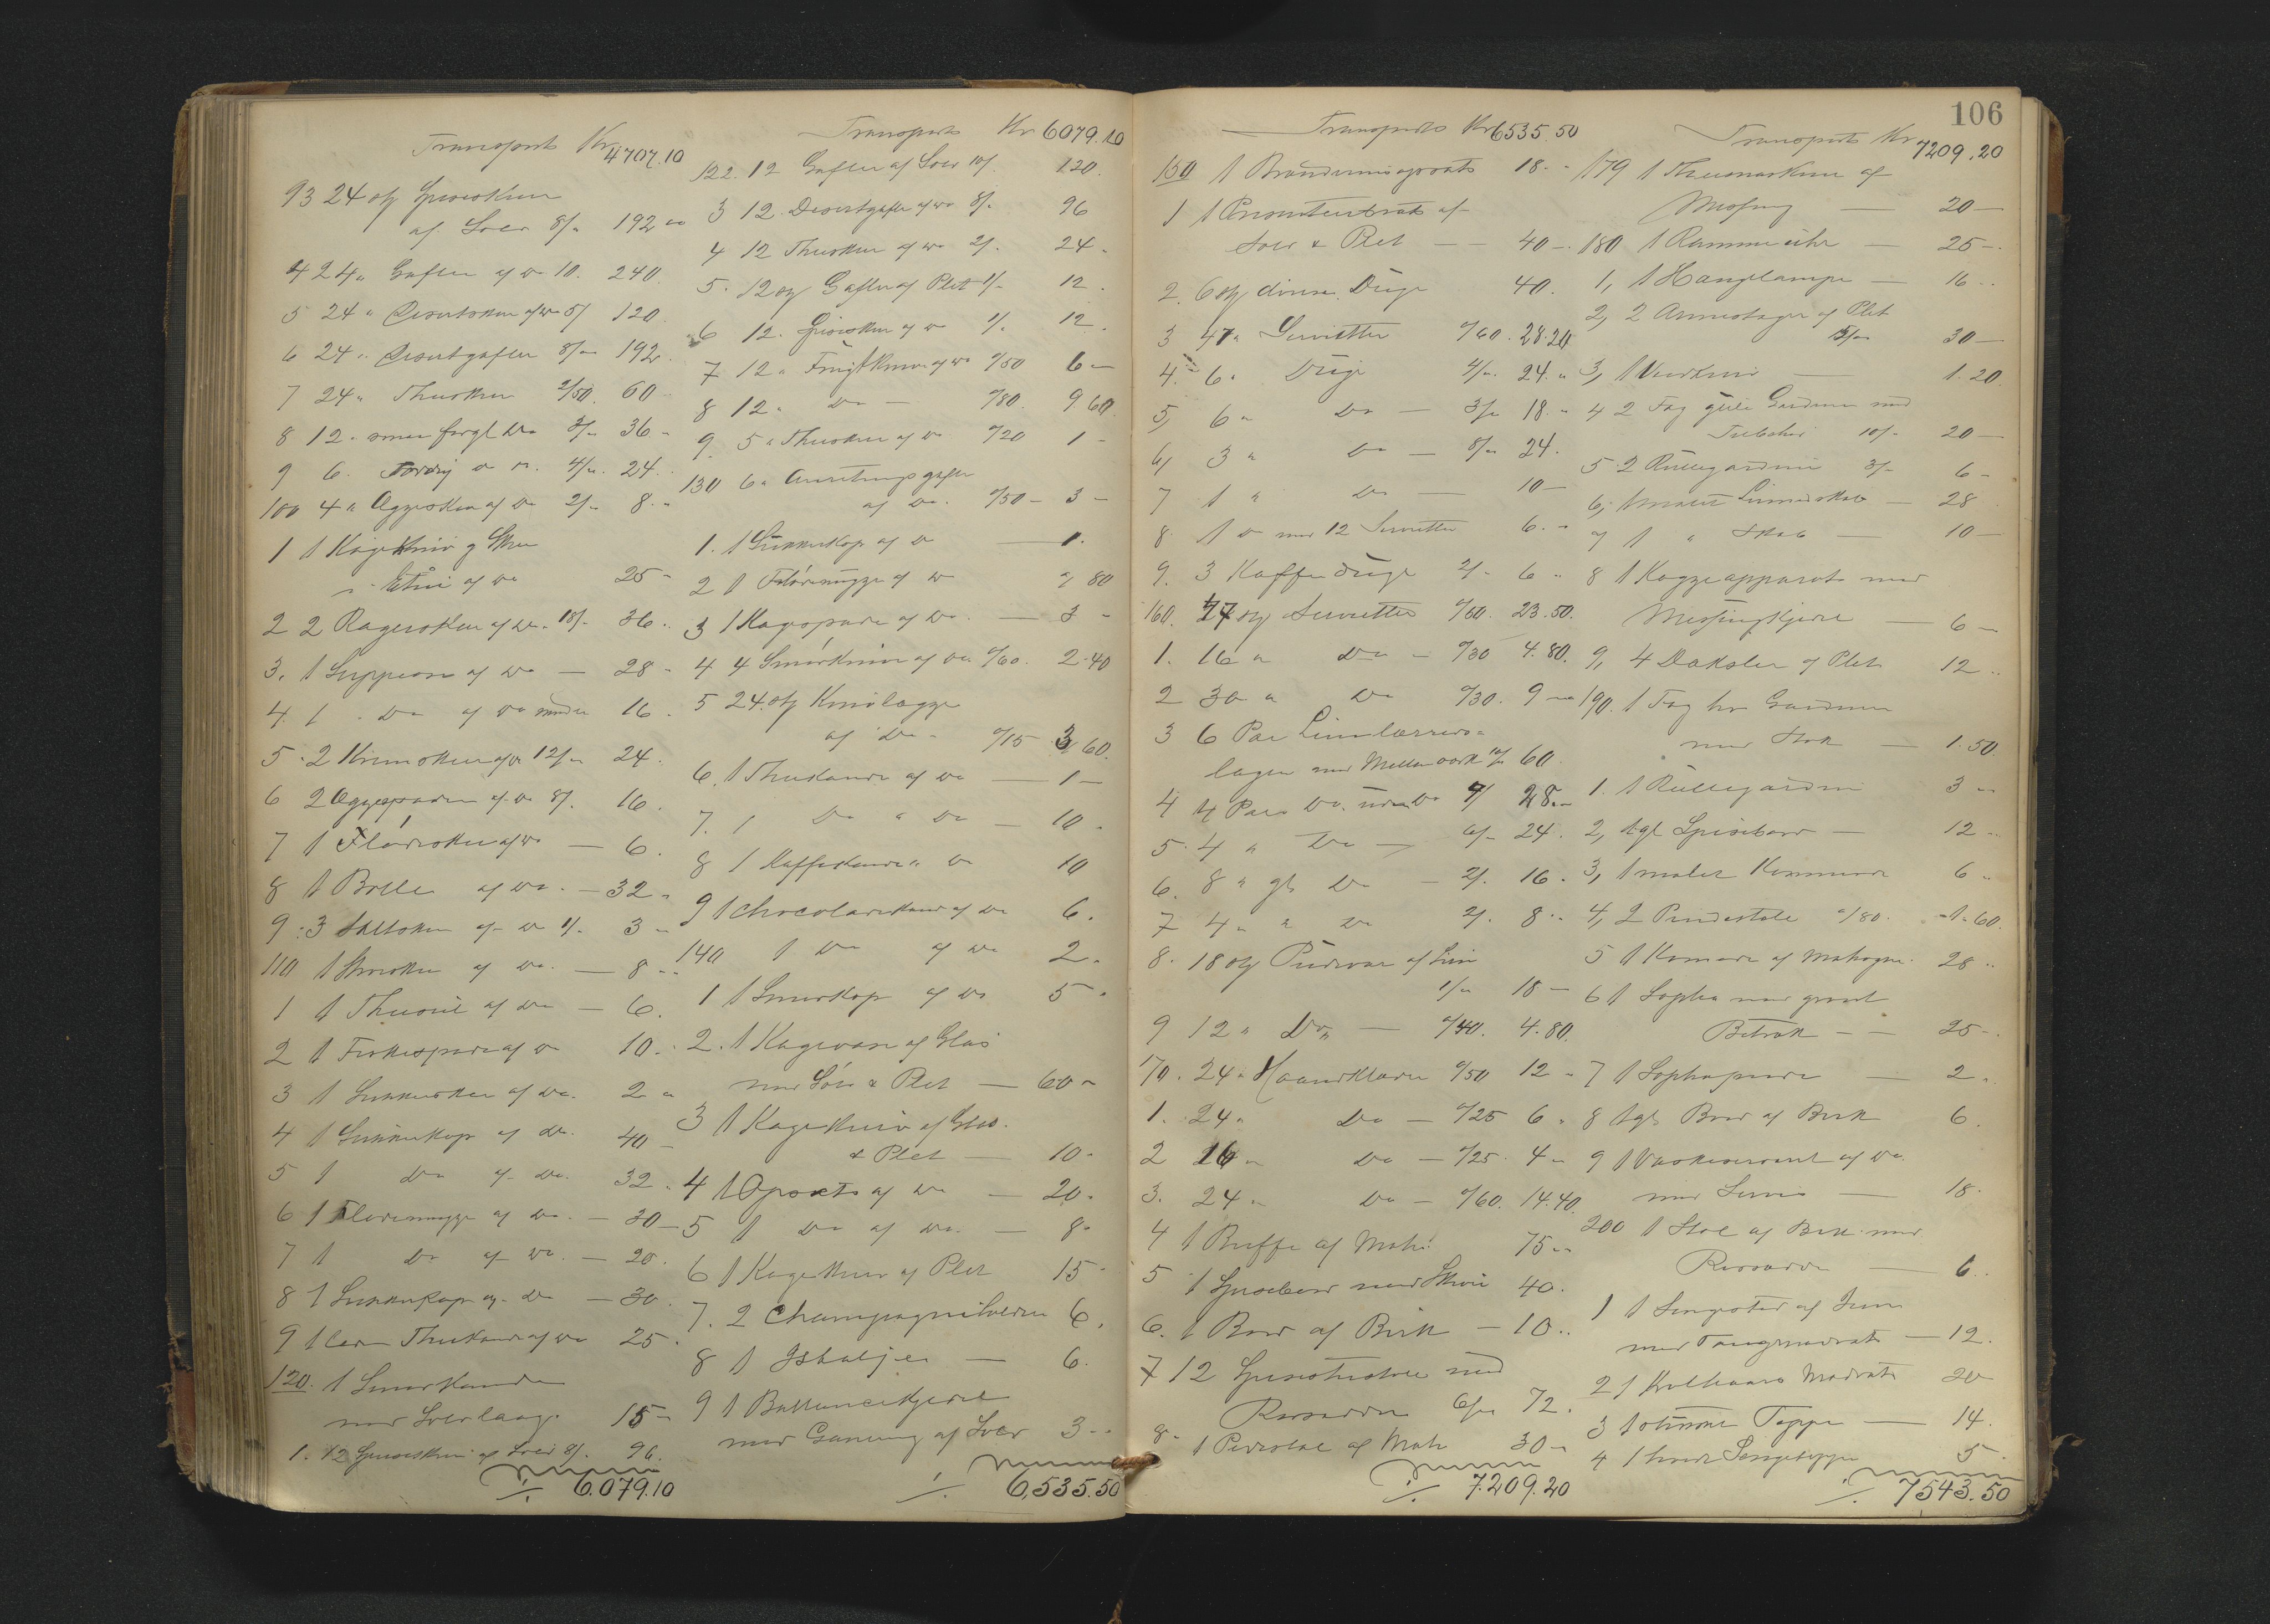 Transport Kr 4707.10
93 24 stk Spiseskeer
af Sølv 8/- 192 "
4 24 " Gafler af Do 10. 240.
5 24 " Desertskeer af Do 5/ 120
6 24 " Desertgafler 8/- 192
7 24 " Theskeer 2/50. 60
8 12 " smaa forgl Do 3/- 36 -
9 6. Do 4/-. 24.
100 4 " Æggeskeer af Do 2/- 8. "
1 1 Kagekniv og Skee
i Etui af Do 25 -
2 2 Rageuskeer af Do 18/- 36.
3. 1 Suppeøse af Do — 28 -
4. 1 " Do af Do mindre 16.
5 2 Kremskeer af Do 12/- 24.
6 2 Æggespader af Do 8/. 16.
7 1 Flødeske af Do — 6.
8 1 Bolle af Do. — 32 -
9 3 Saltskeer af Do 1/. 3 -
110 1 Smørske af Do. — 8 -
1 1 Thesie af Do — 6.
2 1 Fiskespade af Do 10.
3 1 Sukkerske af Do. 2 "
4 1 Sukkerkop af Do. 40 -
5 1 Do af Do. 32.
6 1 Flødemugge af Do. — 30 -
7 1 Do af Do. — 20.
8 1 Sukkerkop af Do — 30
9 1 Thekande af Do 25.
120. 1 Smørkande
med Sølvlaag. 15 -
1. 12 Spiseskeer af Sølv 8/. 96.
./. 6.079.10
Transport Kr 6079.10
122. 12 Gafler af Sølv 10/. 120.
3 12 Desertgafler af Do 8/. 96
4 12 Theskeer af Do 2/. 24 -
5. 12 stk Gafler af Plet 1/- 12.
6 12. Spiseskeer af Do 1/. 12.
7 12 " Frugtknive af Do "/50 6 -
8 12 " Do — "/80. 9 60.
9. 5 " Theskeer af Do "/20 1 -
130 6 " Anretningsgafler
af Do. "/50 - 3 -
1. 1 Sukkerkop af Do — 1.
2 1 Flødemugge af Do " 80
3 1 Kagespade af Do. — 3 -
4 4 Smørknive af Do "/60. 2.40
5 24 stk Knivlægge
af Do - "/15 3 60.
6. 1 Thekande af Do — 1 —
7. 1 Do " Do — 10.
8 1 Kaffekande " Do 10
9 1 Chocoladekande af Do 6.
140 1 Do af Do 2.
1 1 Smørkop af Do 5 "
2. 1 Kagevase af Glas
med Sølv & Plet — 60 -
3 1 Kagekurv af Glas.
& Plet — 10 -
4 1 Opsats af Do — 20.
5 1 Do af Do. — 8 -
6 1 Kagekurv af Plet 15 -
7. 2 Champagnekølere 6.
8 1 — 6.
9 1 
med af Sølv 3 -
./. 6,535.50
106
Transport Kr 6535.50
150 1 Brændevinsopsats 18. -
1 1 af
Sølv & Plet — 40 -.
2. 6 stk diverse Duge 40.
3 47 " Servietter "/60. 28.20
4. 6 " Duge 4/-. 24. "
5, 6 " Do — 3/- 18. -
6, 3 " Do — 8/- 24.
7 1 " Do — 10 —
8. 1 Do med 12 Servietter 6. -
9. 3 Kaffeduge 2/- 6 "
160. 47 stk Servietter "/50. 23.50.
1. 16 " Do - "/30 4.80.
2 30 " Do "/30. 9 -
3 6 Par Linlærreds-
lagen med Mellemværk 10/- 60.
4 4 Par Do. uden Do 7/ 28. -
5. 4 " Do — 6/- 24.
6. 8 " gl Do — 2/. 16.
7 4 " " Do 2/. 8. -
8. 18 stk Pudevaar af Lin
1/- 18 —
9 12 " Do " — "/40. 4.80.
170. 24 " Haandklæder "/50 12 -
1. 24 " Do — "/25 6 "
2 16 " Do — "/25. 4 "
3. 24 " Do — "/60. 14.40.
4 1 Buffe af Mah. 75 -
5 1 Spisebord med 40.
6. 1 Bord af Birk — 10..
7 12 Spisestuestole med
6/- 72.
8 - 1 Pidestal af Mah 30 -
./. 7.209.20
Transport Kr 7209.20
179 1 Themaskine af
Messing — 20 —
180 1 Rammeuhr — 25 —.
1, 1 Hængelampe — 16..
2, 2 Armestager af Plet
15/- 30 —
3, 1 — 1.20.
4 2 Fag gule Gardiner med
10/- 20 —
5 2 Rullegardiner 3/- 6 -
6, 1 malet Linnedskab — 28
7 1 " Skab — 10 —
8 1 Koggeapparat med
Messingkjedel — 6 —
9, 4 Dæksler af Plet 12..
190. 1 Fag hv Gardiner
med Stok — 1.50.
1. 1 Rullegardin 3 --
2, 1 gl Spisebord — 12 --
3, 1 malet Kommode 6 "
4, 2 Pindestole "/80. - 1.60.
5 1 Komode af Mahogni 28..
6 1 Sopha med grønt
Betræk — 25 -
7 1 Sophapude — 2 -
8 1 gl. Bord af Birk 6
9 1 Vaskeservant af Do
med Servis — 18.
200 1 Stol af Birk med
— 6.
1 1 Sengested af Jern
med Tangmadrats — 12.
2 1 Krølhaars Madrats 20
3 1 Tæppe — 14.
4 1 hvidt Sengetæppe 5.
./. 7543.50